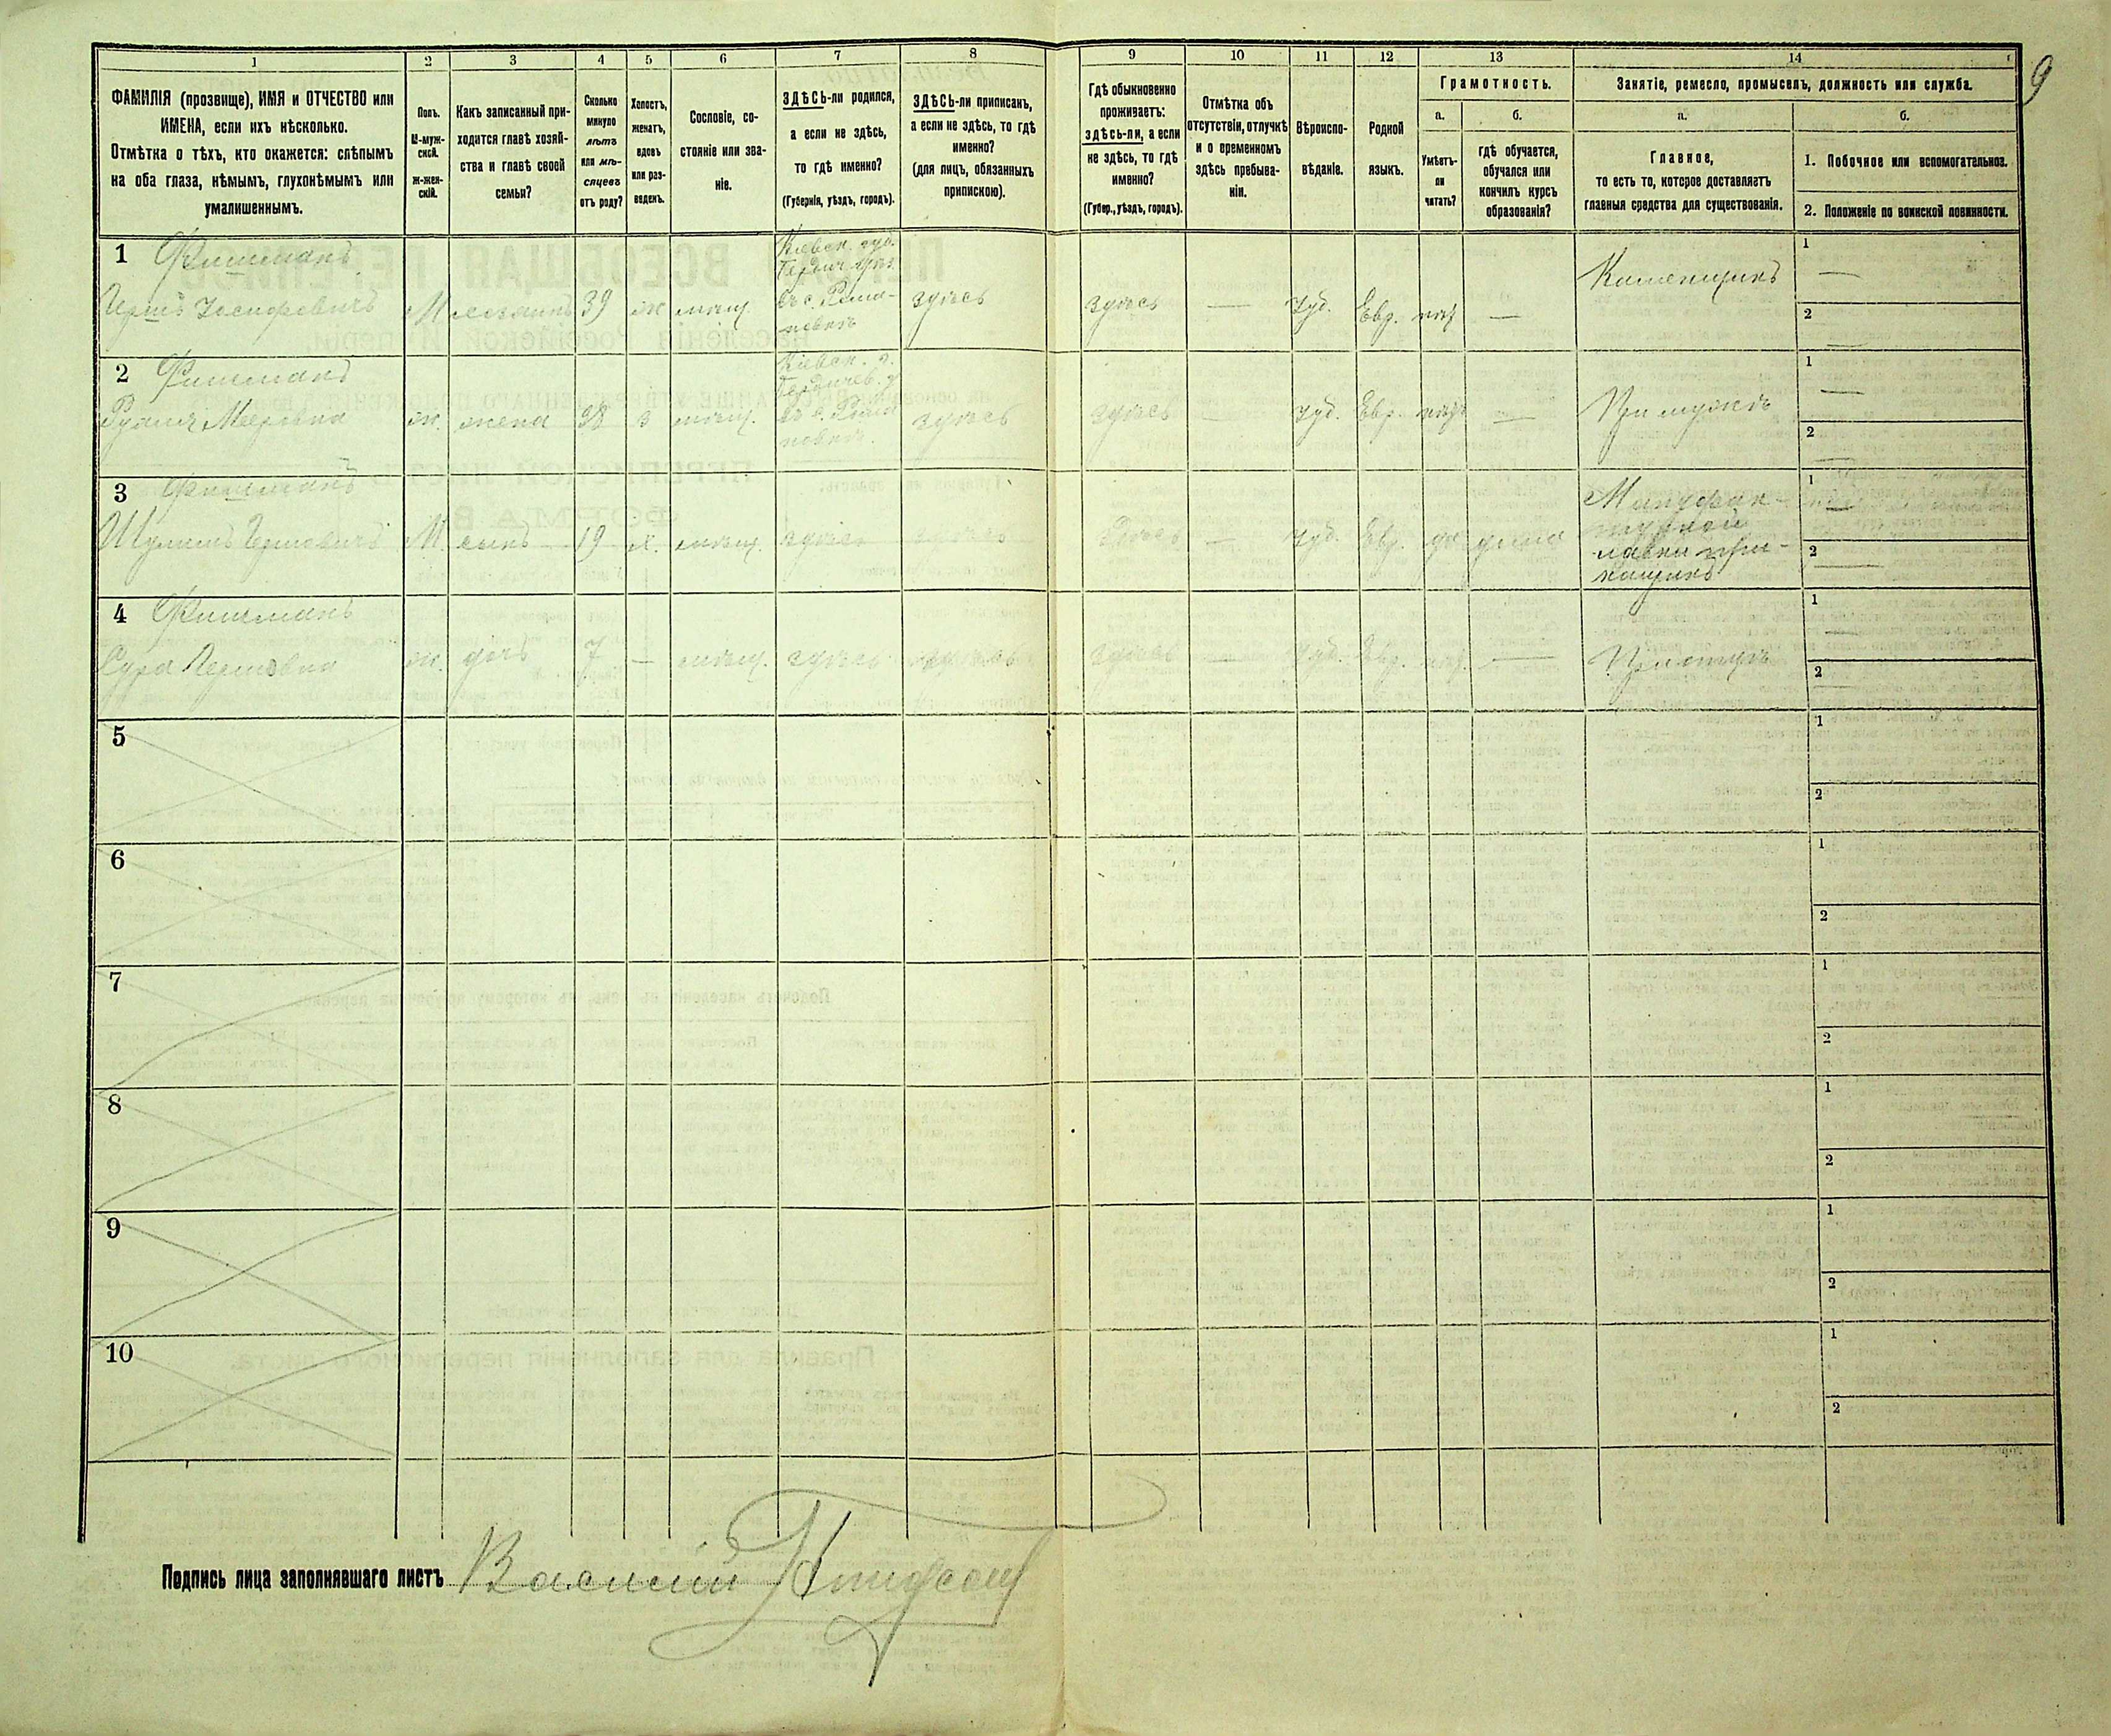 9
1 2 3 4 5 6 7 8 9 10 11 12 13 14
ФАМИЛІЯ (прозвище), ИМЯ и ОТЧЕСТВО или
ИМЕНА, если ихъ нѣсколько.
Отмѣтка о тѣхъ, кто окажется: слѣпымъ
на оба глаза, нѣмымъ, глухонѣмымъ или
умалишеннымъ.
Полъ.
М-муж-
ской.
ж-жен-
скій.
Какъ записанный при-
ходится главѣ хозяй-
ства и главѣ своей
семьи?
Сколько
минуло
лѣтъ
или мѣ-
сяцевъ
отъ роду?
Холостъ,
женатъ,
вдовъ
или раз-
веденъ.
Сословіе, со-
стояніе или зва-
ніе.
ЗДѢСЬ-ли родился,
а если не здѣсь,
то гдѣ именно?
(Губернія, уѣздъ, городъ).
ЗДѢСЬ-ли приписанъ,
а если не здѣсь, то гдѣ
именно?
(для лицъ, обязанныхъ
припискою).
Гдѣ обыкновенно
проживаетъ:
здѣсь-ли, а если
не здѣсь, то гдѣ
именно?
(Губер., уѣздъ, городъ).
Отмѣтка объ
отсутствіи, отлучкѣ
и о временномъ
здѣсь пребыва-
ніи.
Вѣроиспо-
вѣданіе.
Родной
языкъ.
Грамотность.
а.
Умѣетъ-
ли
читать?
б.
гдѣ обучается,
обучался или
кончилъ курсъ
образованія?
Занятіе, ремесло, промыселъ, должность или служба.
а.
Главное,
то есть то, которое доставляетъ
главныя средства для существованія.
б.
1. Побочное или вспомогательное.
2. Положеніе по воинской повинности.
1 Фишманъ
Кіевск. губ.
Бердич. уѣз.
Гершъ Іосифовичъ М хозяинъ 39 ж мѣщ. въ с. Рома-
новкѣ
здѣсь здѣсь — Іуд. Евр. нѣт — Каменщикъ
1 —
2 —
2 Фишманъ
Кіевск. г.
Бердичев. у.
Мееровна ж. жена 38 з мѣщ. въ с. Рома
новкѣ.
здѣсь здѣсь — Іуд. Евр. нѣт — При мужѣ
1 —
2 —
3 Фишманъ
Шулимъ Гершовичъ М. сынъ 19 х. мѣщ. здѣсь здѣсь здѣсь — Іуд. Евр. да дома
Мануфак-
турной
лавки при-
кащикъ
1 —
2 —
4 Фишманъ
Сура Гершовна ж. дочь 7 — мѣщ. здѣсь здѣсь здѣсь — Іуд. Евр. нѣт. — При отцѣ
1 —
2 —
5
1
2
6
1
2
7
1
2
8
1
2
9
1
2
10
1
2
Подпись лица заполнявшаго листъ Василій